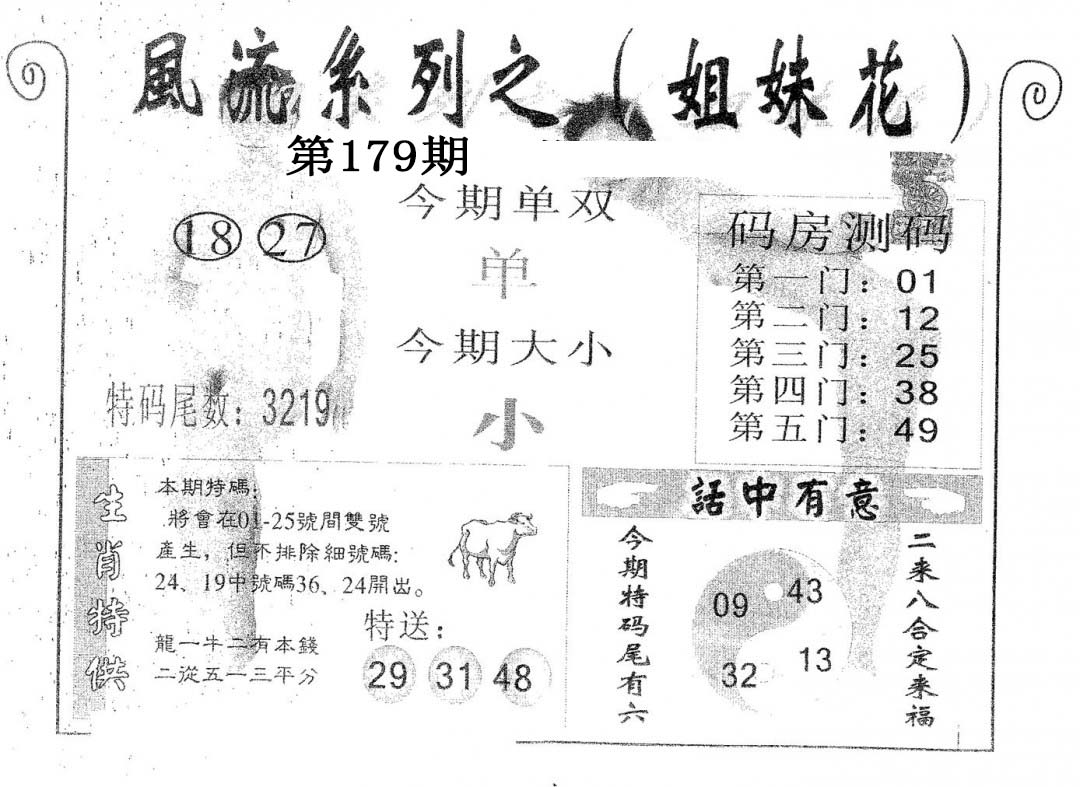 風流系列之(姐妹花)
第179期
18 27
今期单双
单
今期大小
小
特码尾数：3219
码房测码
第一门：01
第二门：12
第三门：25
第四门：38
第五门：49
生肖特供
本期特碼：
將會在01-25號間雙號
產生，但不排除細號碼：
24、19中號碼36、24開出。
龍一牛二有本錢
二從五一三平分
特送：
29 31 48
話中有意
今期特码尾有六
09 43
32 13
二来八合定来福